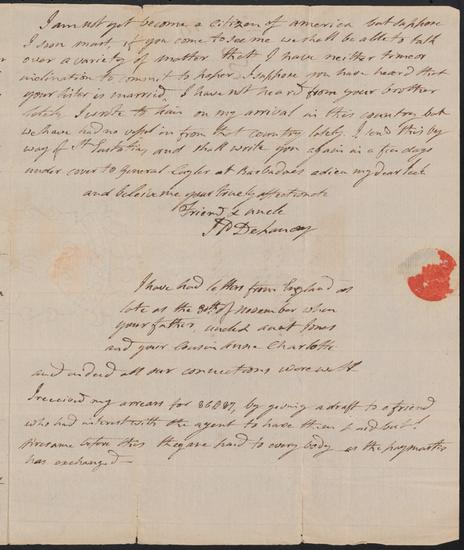 I am not yet become a citizen of america but suppose
I soon must, if you come to see me we shall be able to talk
over a variety of matter that I have neither time or
inclination to commit to paper I suppose you have heard that
your sister is married, I have not heard from your brother
lately I wrote to him on my arrival in this country but
we have had no vessel in from that country lately. I send this by
way of St Eustatius and shall write you again in a few days
under cover to General Cuyler at Barbadoes adieu my dear
and beleive me your truely affectionate
Friend & uncle
JP DeLancey
I have had letters from England as
late as the 30th of November when
your father, uncle & aunt Jones
and your Cousin Anne Charlotte
and indeed all our connections were well
I received my arrears for 86 & 87, by giving a draft to a friend
who had interest with the agent to have them paid but I
presume before this they are paid to every body as the paymaster
has exchanged —